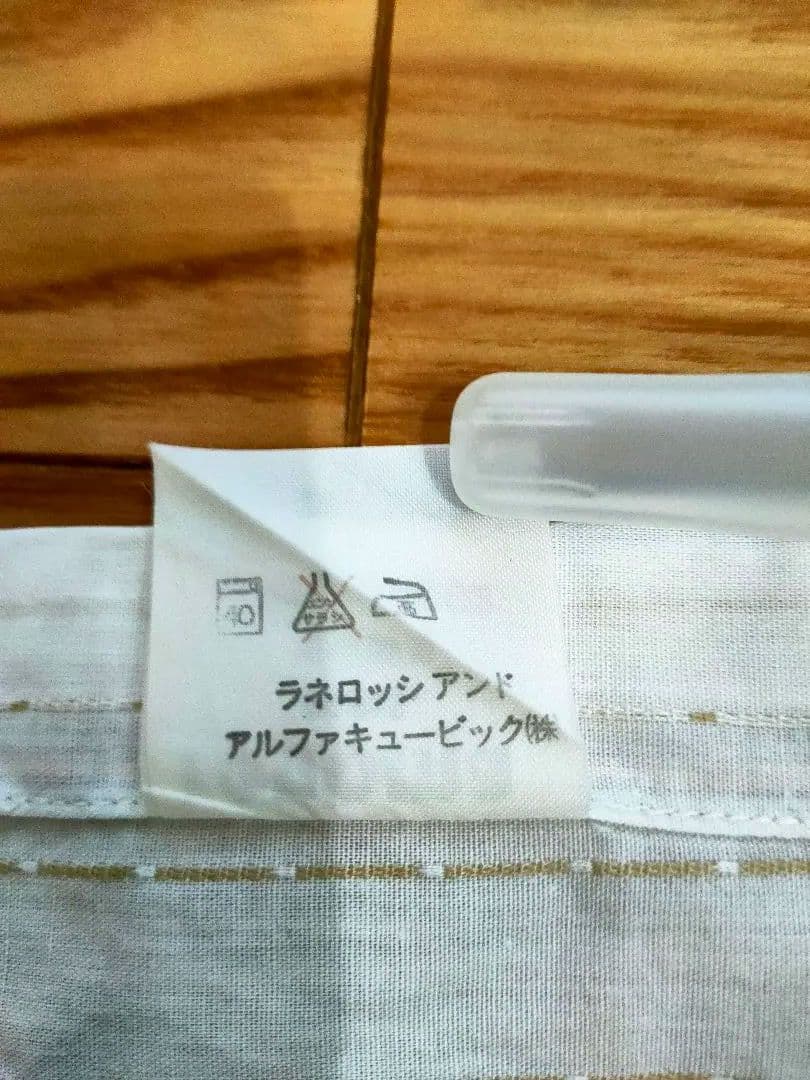 40
ラネロッシ アンド
アルファキュービック㈱